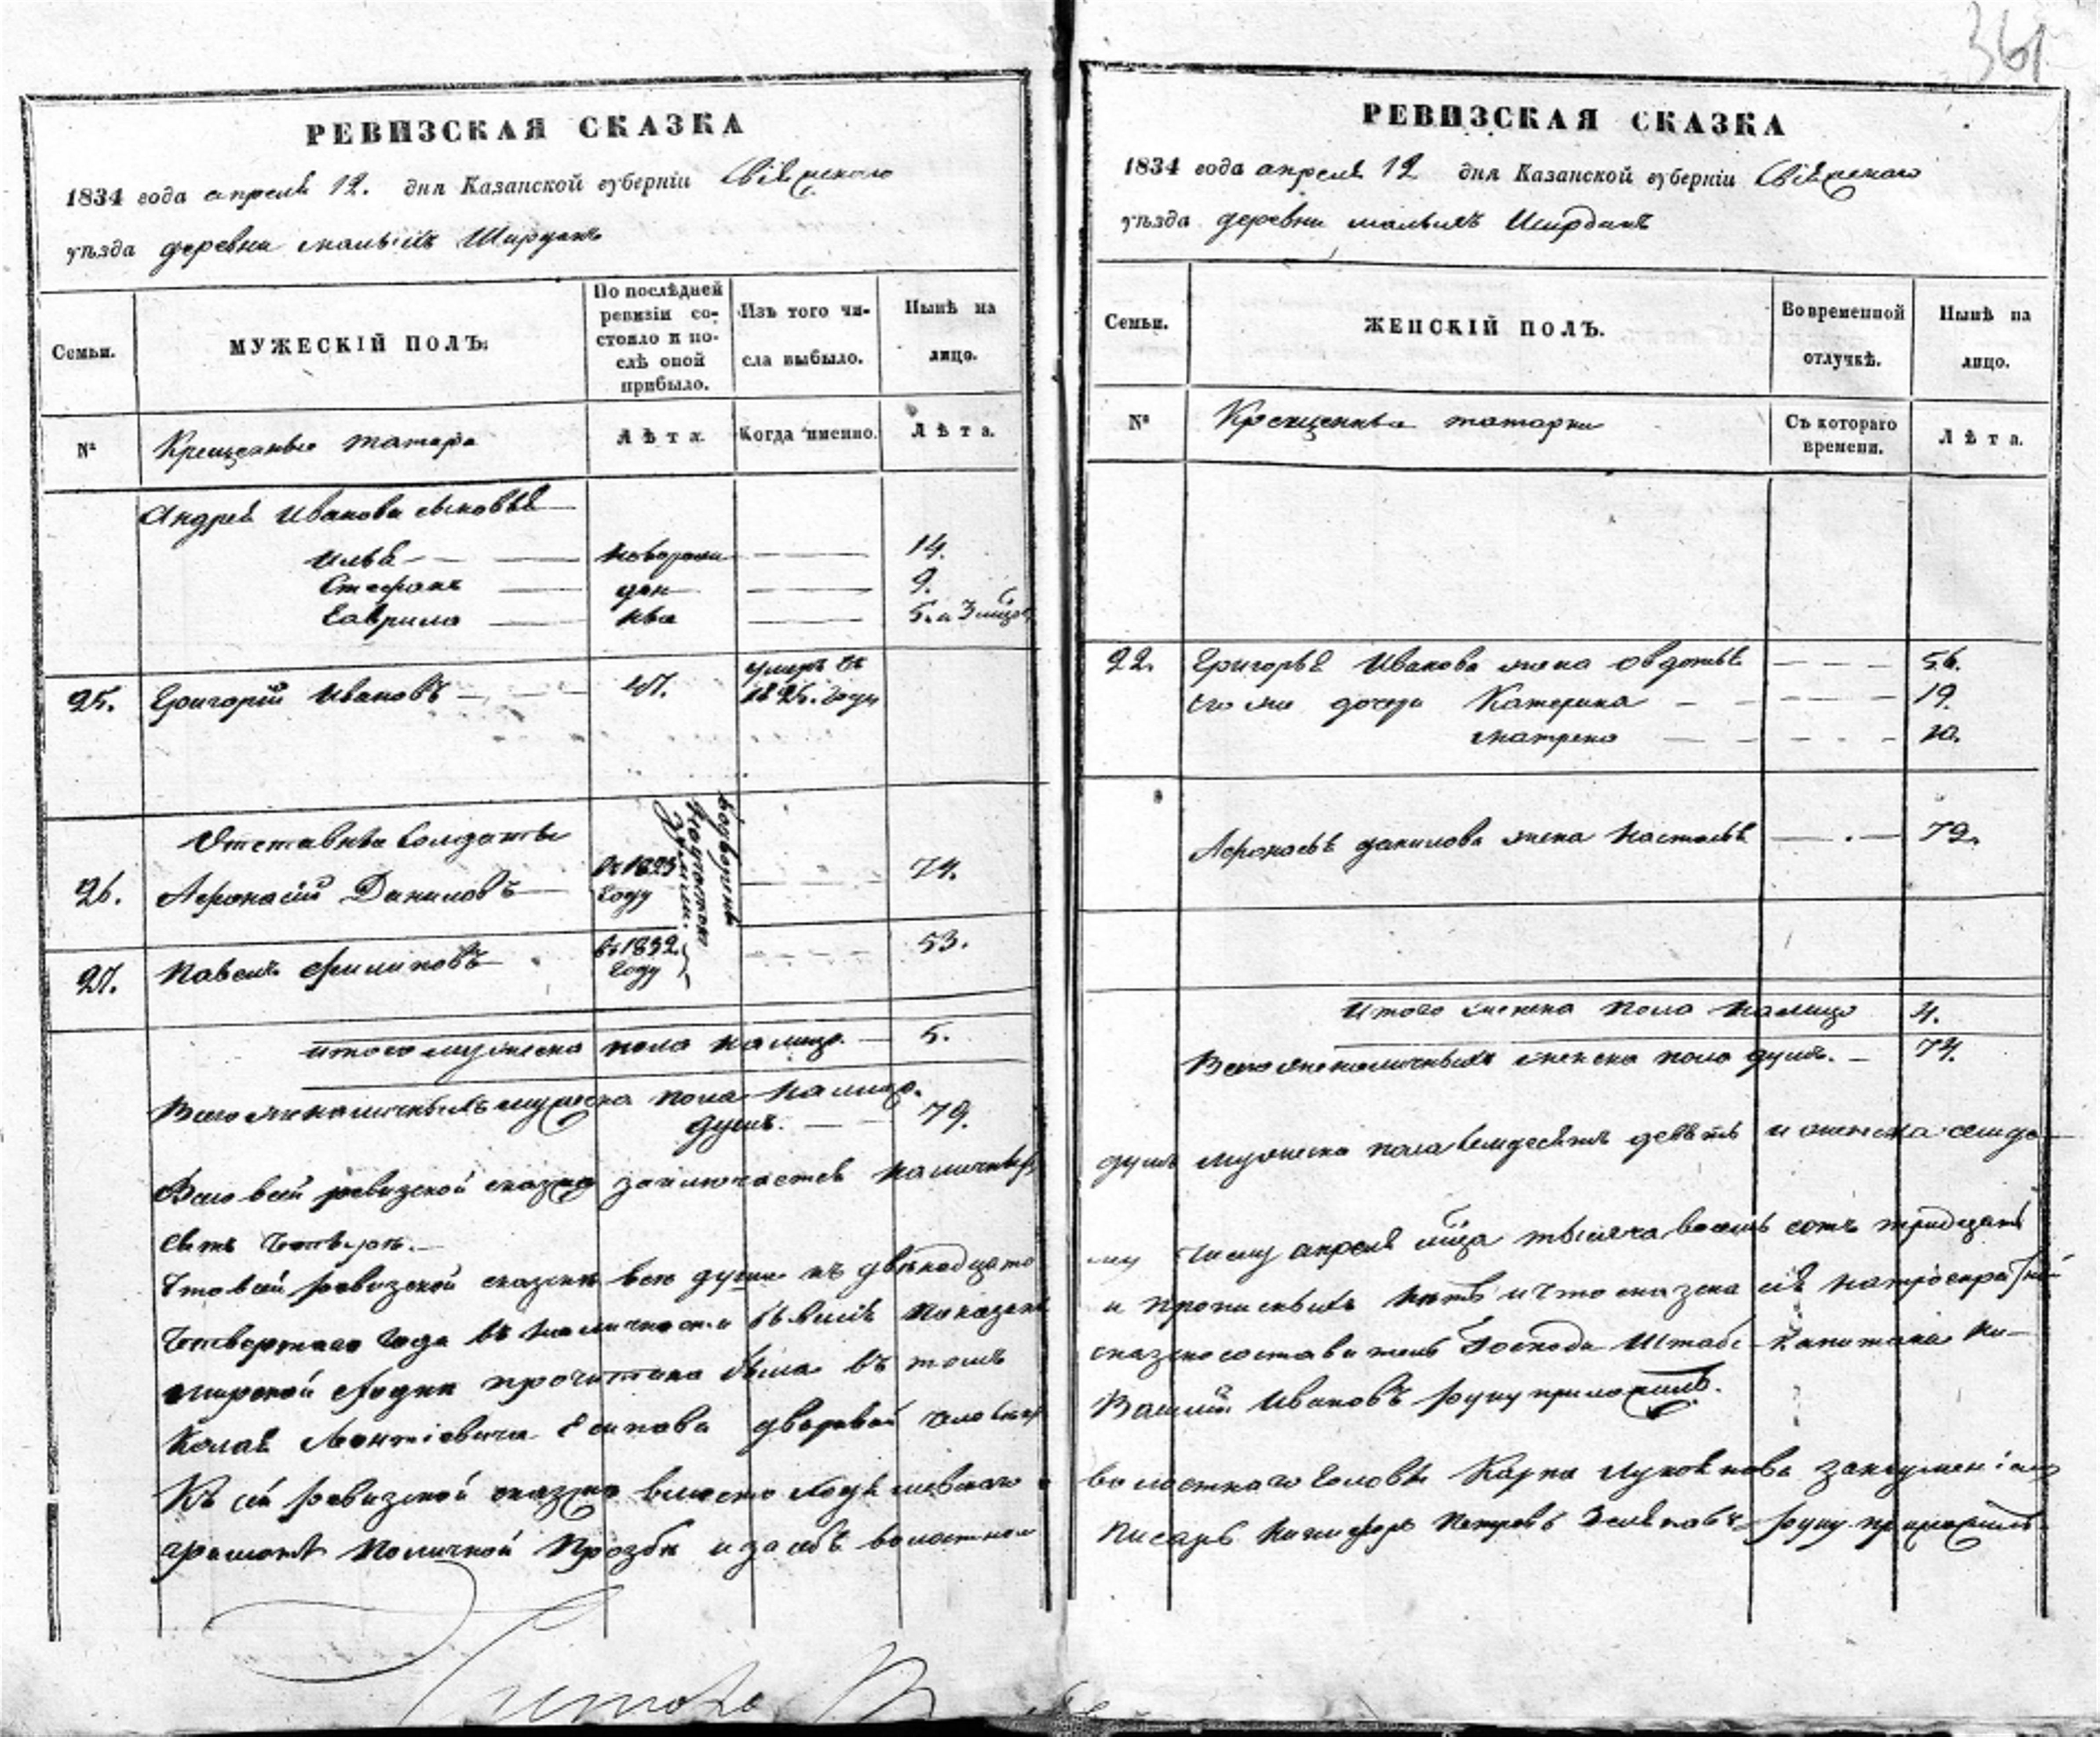 361
РЕВИЗСКАЯ СКАЗКА
1834 года апреля 12. дня Казанской губерніи Свіяжскаго
уѣзда деревни малыхъ Ширданъ
Семьи.
МУЖЕСКІЙ ПОЛЪ.
По послѣдней ревизіи состояло и послѣ оной прибыло.
Изъ того числа выбыло.
Нынѣ на лицо.
№
Крещеные татара
Лѣта.
Когда именно.
Лѣта.
Андрея Иванова сыновья
Илья — новорож — 14.
Стефанъ — ден — 9.
Гаврила — ные — 5. и 3 мѣсе
25. Григорій Ивановъ — 47. умеръ въ
1825. году
Отставные солдаты
водворенъ
26. Афонасій Даниловъ — въ 1823 году — 74.
27. Павелъ Филиповъ — въ 1832 году — 53.
итого мужеска пола на лицо. — 5.
Всего же наличныхъ мужеска пола на лицо.
душъ. — 79.
Всего въ сей ревизской сказке заключается наличныхъ
сятъ четыре. —
Что въ сей ревизской сказке все души къ двенадцато
четвертаго года въ наличности бывшія показаны
мирской сходки прочитана была въ томъ
колая Леонтіевича Есипова дворовой человекъ
Къ сей ревизской сказке вместо
грамоте по личной прозбе и за себя волостной
РЕВИЗСКАЯ СКАЗКА
1834 года апреля 12 дня Казанской губерніи Свіяжскаго
уѣзда деревни малыхъ Ширданъ
Семьи.
ЖЕНСКІЙ ПОЛЪ.
Во временной отлучкѣ.
Нынѣ на лицо.
№
Крещенныя татарки
Съ котораго времени.
Лѣта.
22. Григорья Иванова жена Овдотья — — — 56.
его же дочери Катерина — — — 19.
Матрена — — — 10.
Афонасья Данилова жена Настасья — . — 72.
Итого женска пола на лицо 4.
Всего же наличныхъ женска пола душъ. — 74.
душъ мужеска пола семдесятъ девять и женска семде
му числу апреля мца тысяча восемь сотъ тридцать
и прописныхъ нетъ и что сказка сія на
сказкосоставитель Господа Штабс-капитана Ни-
Василій Ивановъ руку приложилъ.
волостнаго головы Карпа за неумениемъ
писарь Никифоръ Петровъ руку приложилъ